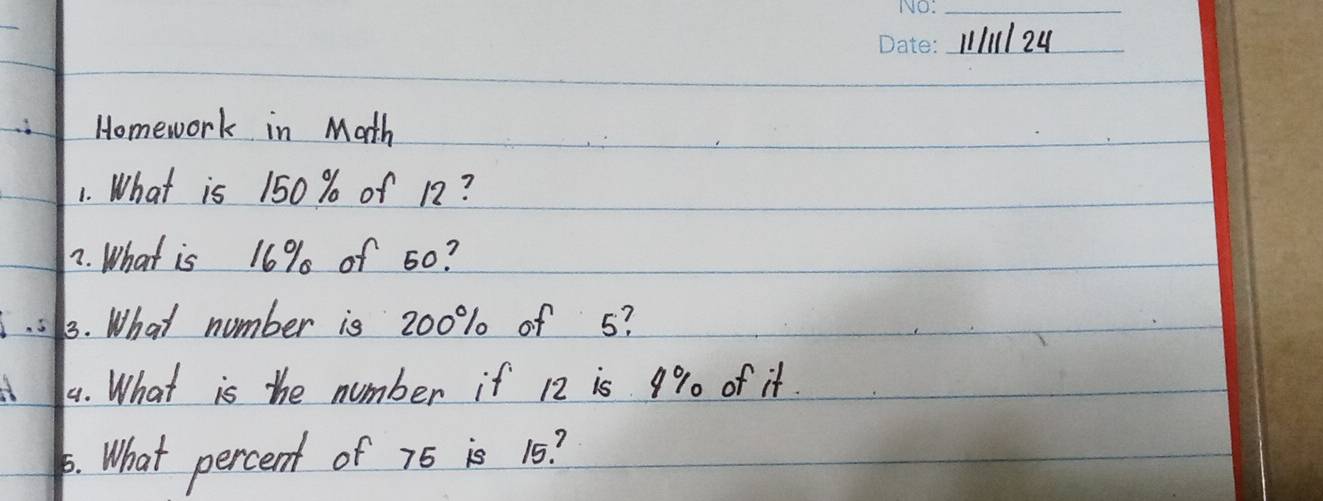 No:
Date: 11/11/24
Homework in Math
1. What is 150% of 12?
2. What is 16% of 50?
3. What number is 200% of 5?
4. What is the number if 12 is 9% of it.
5. What percent of 75 is 15?